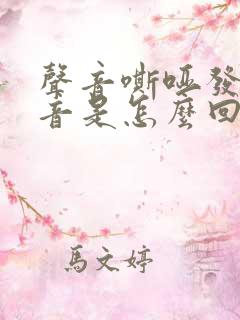 聲音嘶啞發
音是怎麼回
馬文婷